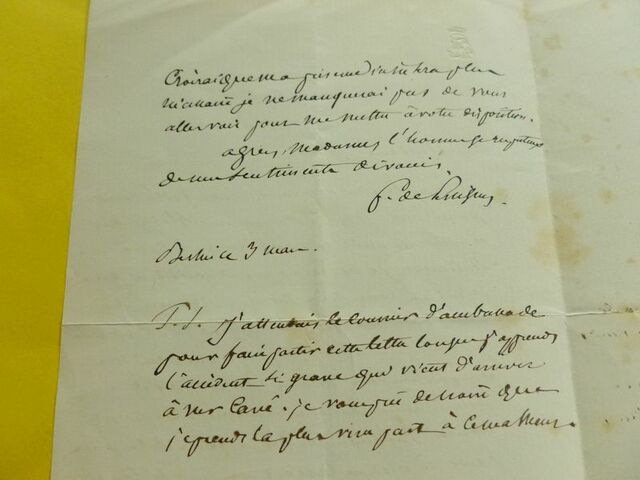 Croirai que ma présence intéressera plus
je ne manquerai pas de vous
aller voir pour me mettre à votre disposition.
agréez, Madame, l'hommage respectueux
de mes sentiments dévoués.
de
Berlin ce 3 mars.
P.S. j'attendais le courrier d'ambassade
pour faire partir cette lettre lorsque j'apprends
l'accident si grave qui vient d'arriver
à je vous prie de croire que
je prends la plus vive part à ce malheur.